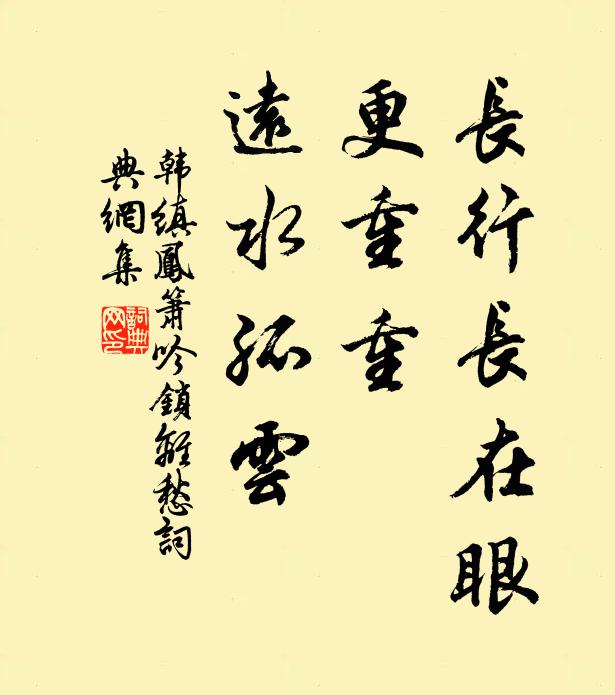 長行長在眼
更重重
遠水孤雲
韩縝鳳簫吟鎖離愁詞
典網集
詞典
网印